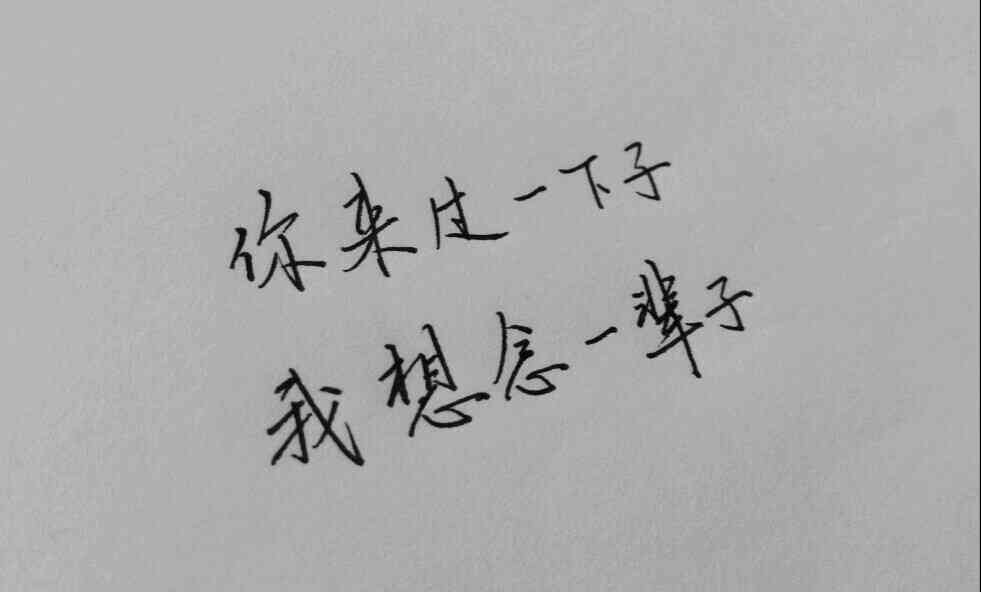 你来过一下子
我想念一辈子